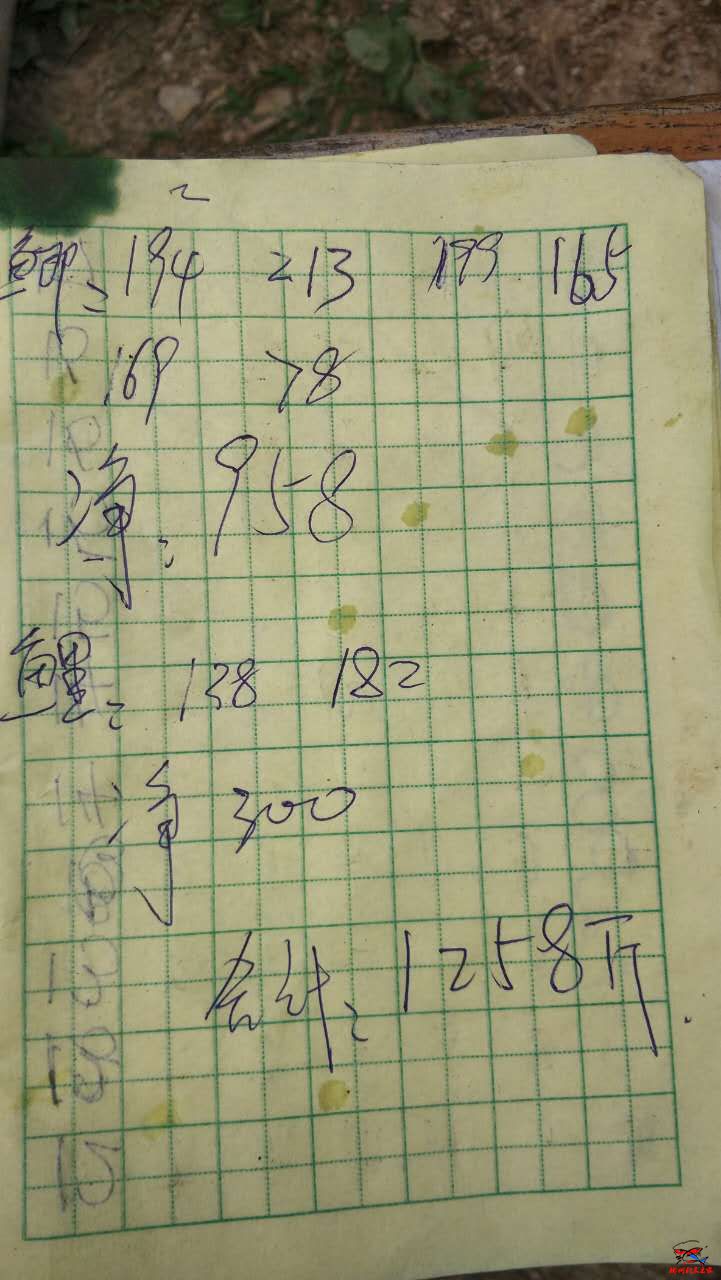 鲫: 194 213 199 165
169 78
净: 958
鲤: 138 182
净 300
合计: 1258斤